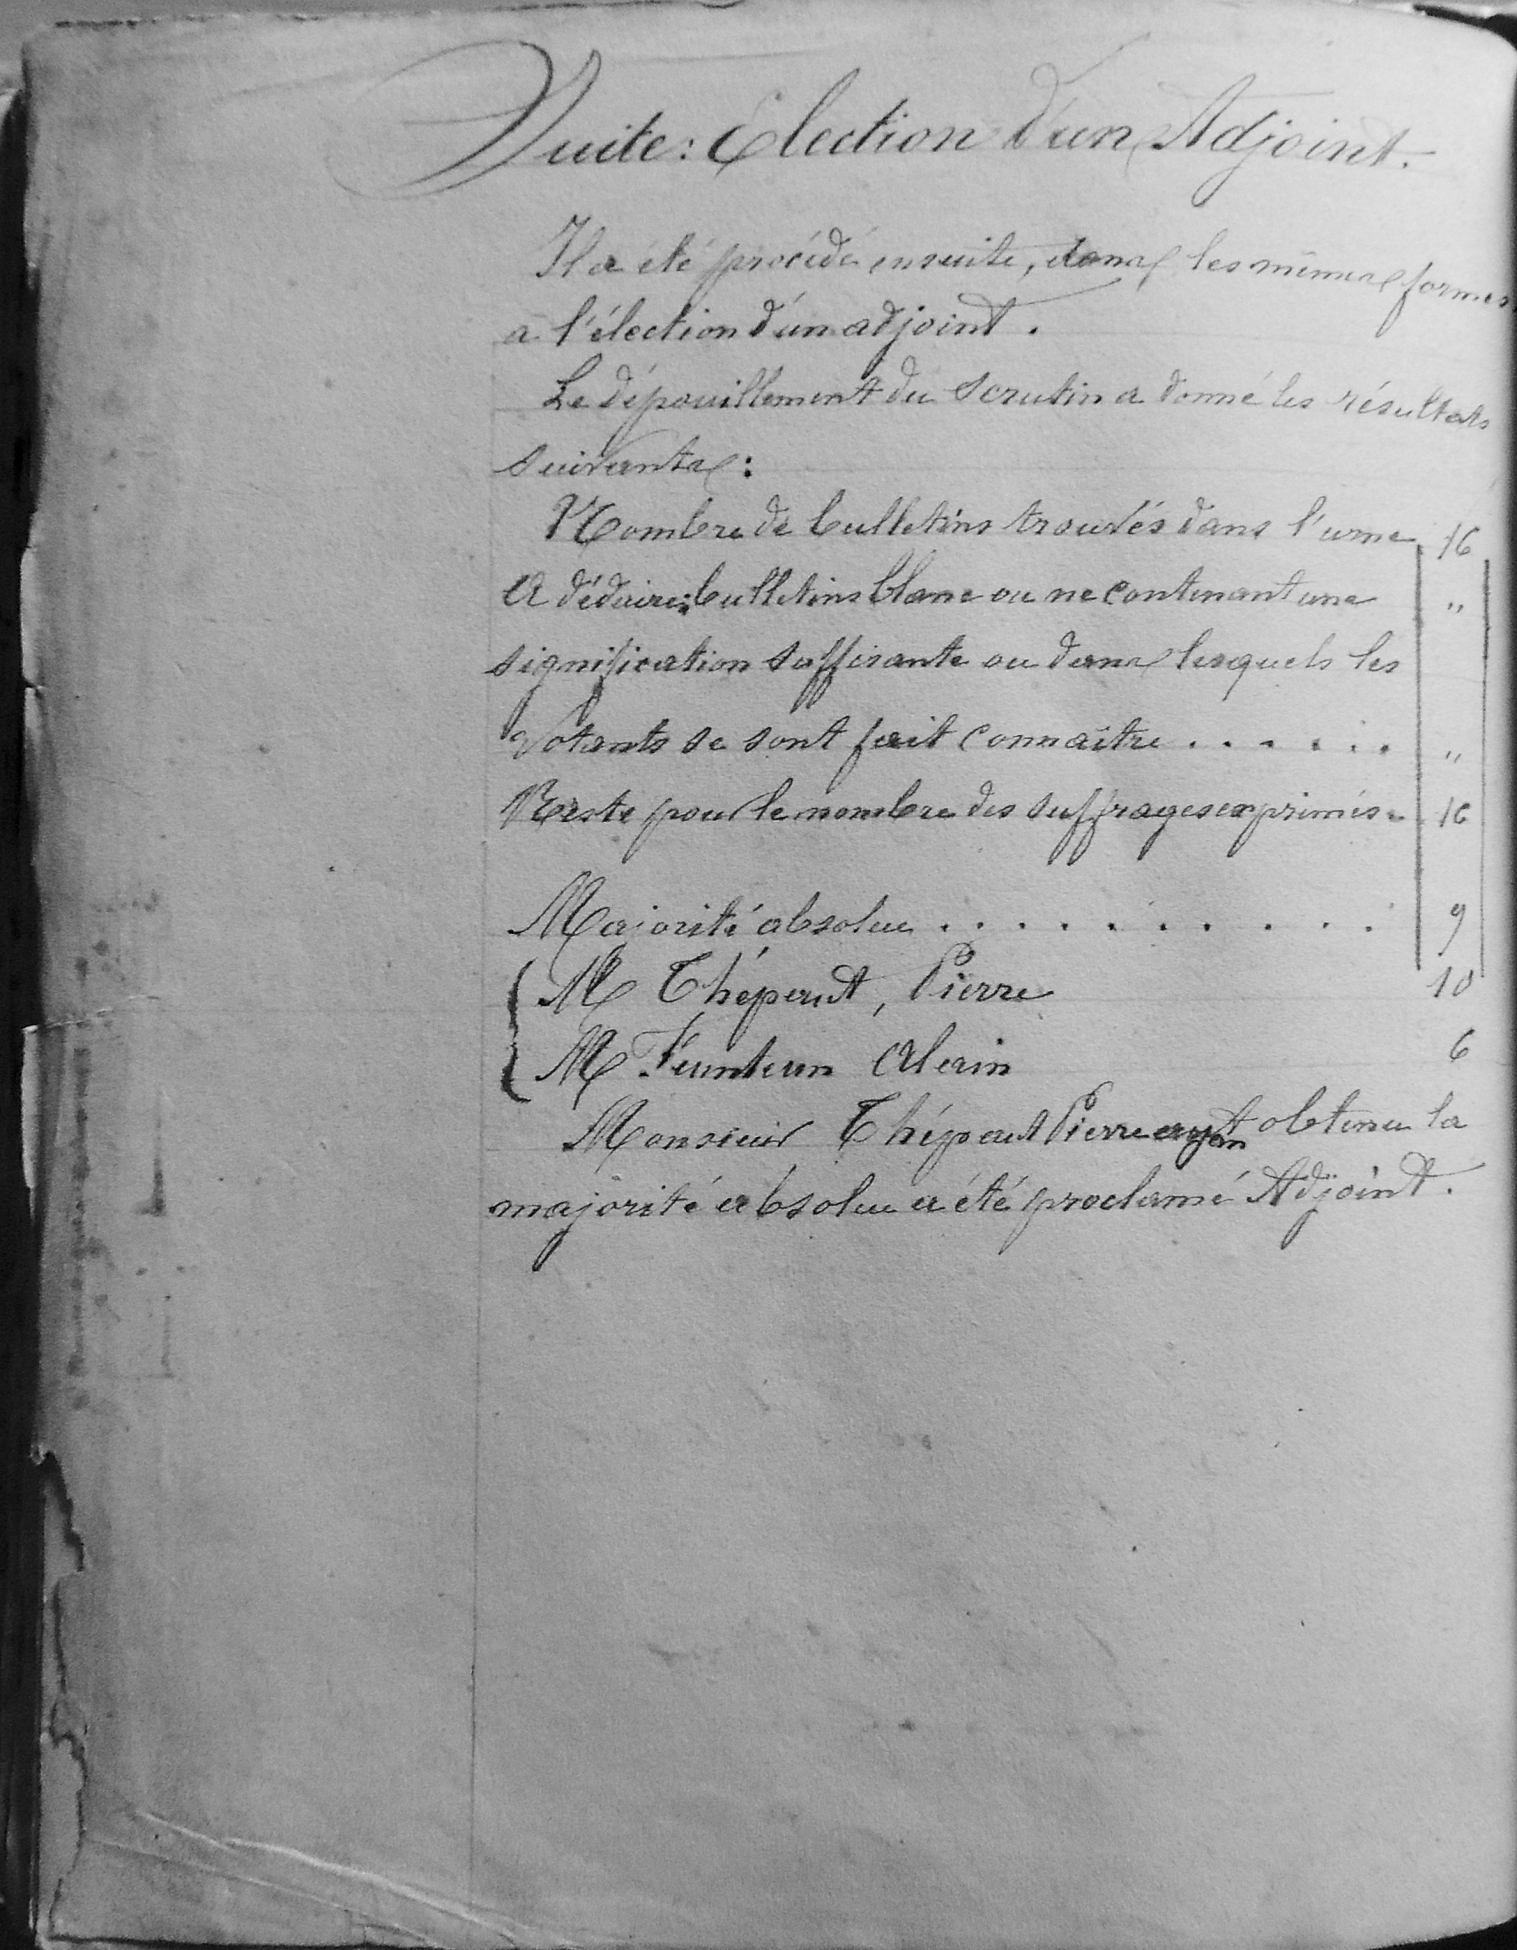 Suite: Election d'un Adjoint.
Il a été procédé ensuite, dans les mêmes formes
à l'élection d'un adjoint.
Le dépouillement du scrutin a donné les résultats
suivants :
Nombre de bulletins trouvés dans l'urne. 16
A déduire: bulletins blanc ou ne contenant une "
signification suffisante ou dans lesquels les
Votants se sont fait connaître . . . . . . "
Reste pour le nombre des suffrages exprimés. 16
Majorité absolue . . . . . . . . . . . 9
M Thépaut, Pierre 10
M Feunteun Alain 6
Monsieur Thépaut Pierre ayant obtenu la
majorité absolue a été proclamé Adjoint.